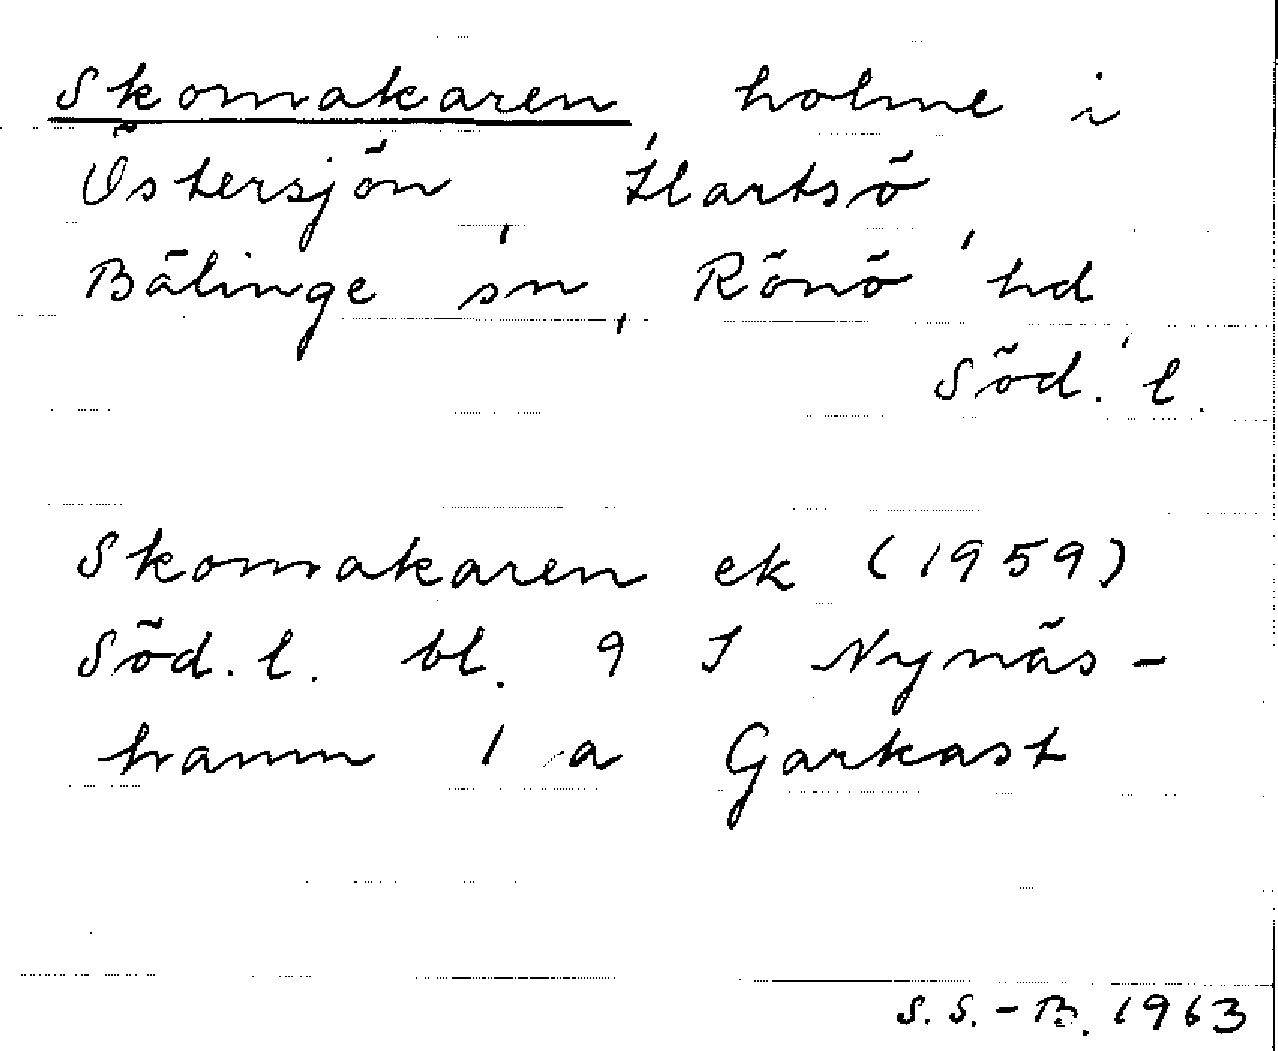 Skomakaren, holme i
Östersjön, Hartsö,
Bälinge sn, Rönö hd,
Söd. l.
Skomakaren ek (1959)
Söd. l. bl. 9 I Nynäs-
hamn 1 a Garkast
S. S.-B. 1963